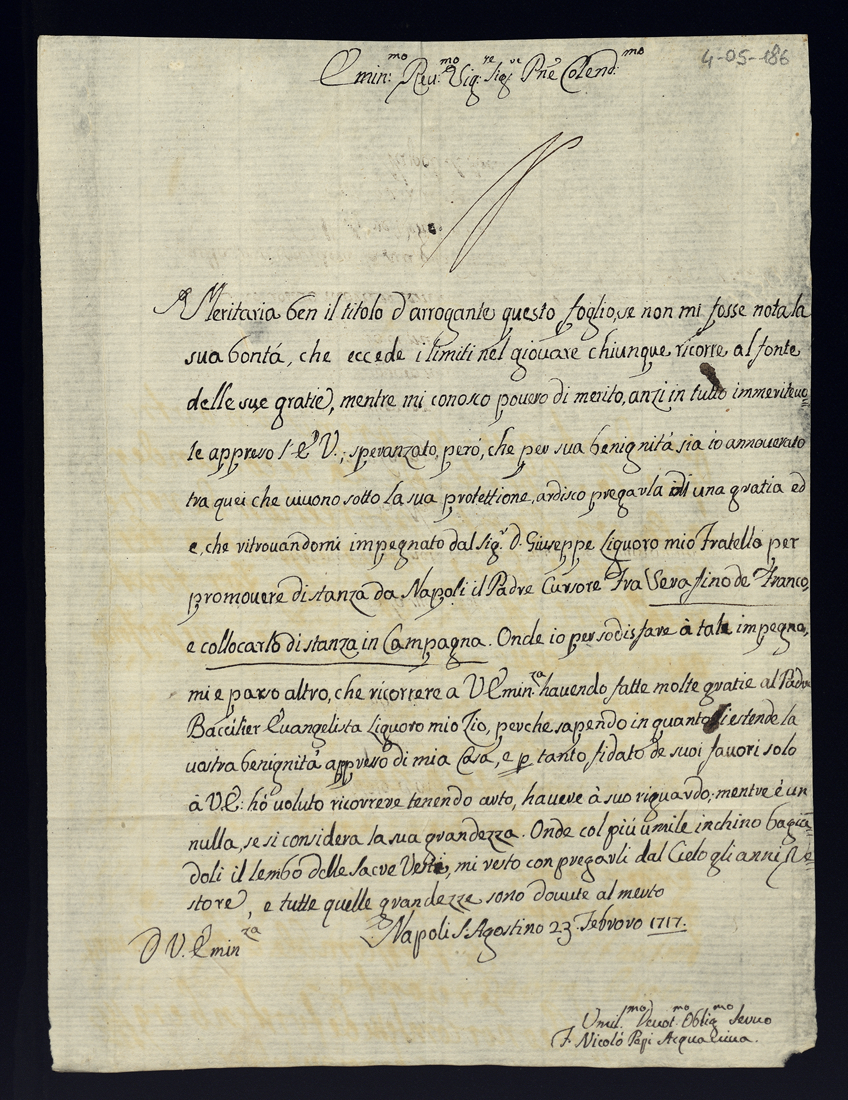 4-05-186
Emin:mo Reu:mo Sig:re Sig:re Pne Colend:mo
Meritaria ben il titolo d'arrogante questo foglio, se non mi fosse nota la
sua bontá, che eccede i limiti nel giouare chiunque ricorre al fonte
delle sue gratie, mentre mi conosco pouero di merito, anzi in tutto immeriteuo=
le appreso l'E V.; speranzato, peró, che per sua benignitá sia io annouerato
tra quei che uiuono sotto la sua protettione, ardisco pregarla di una gratia ed
e, che ritrouandomi impegnato dal Sig.r D. Giuseppe Liguoro mio Fratello per
promouere di stanza da Napoli il Padre Cursore Fra Serafino de Franco,
e collocarlo di stanza in Campagna. Onde io per sodisfare à tale impegno,
mi e parso altro, che ricorrere a V Emin:za hauendo fatte molte gratie al Padre
Baccilier Euangelista Liguoro mio Zio, perche sapendo in quanto si estende la
uostra benignitá appresso di mia Casa, e p tanto fidato de suoi fauori solo
à V.E: hó uoluto ricorrere tenendo certo, hauere à suo riguardo; mentre é un
nulla, se si considera la sua grandezza. Onde col piú umile inchino bagian=
doli il lembo delle Sacre Vesti, mi resto con pregarli dal Cielo gli anni di Ne=
store, e tutte quelle grandezze sono douute al merto
D V. Emin:za Napoli S. Agostino 23 Febroro 1717.
Umil:mo Deuot:mo Oblig:mo Seruo
F. Nicoló Papi Acquauiua.